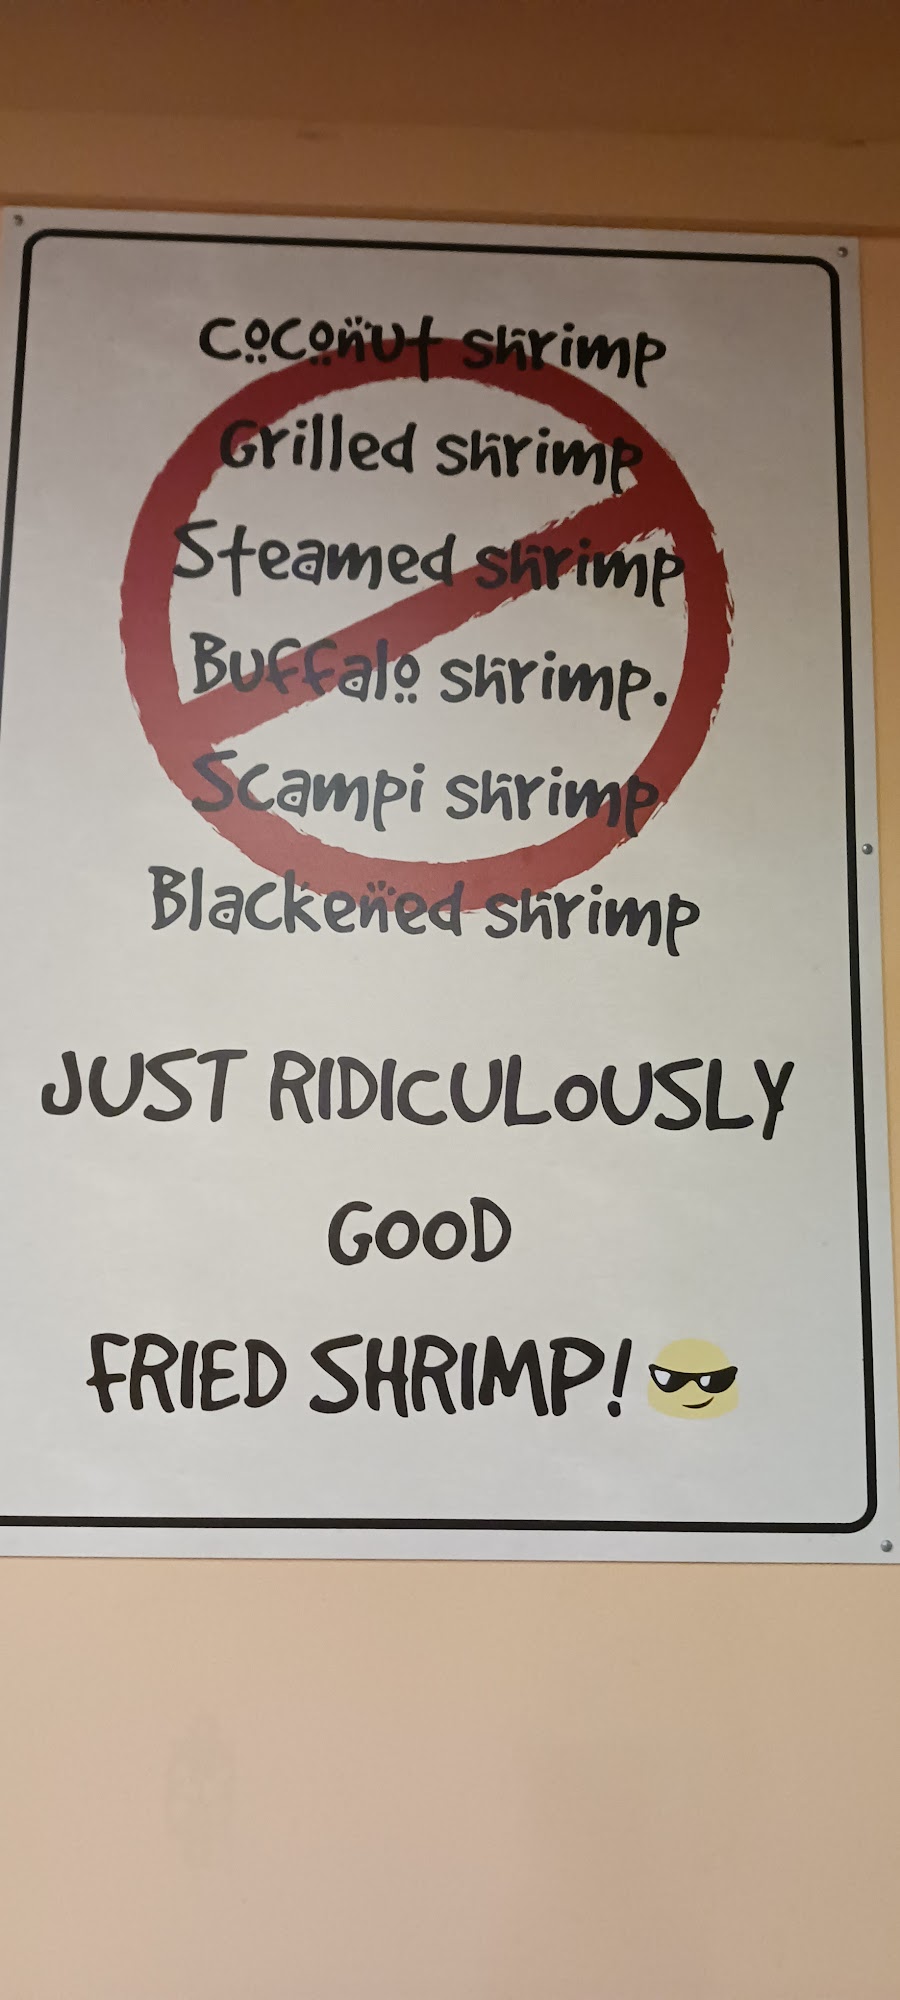 Coconut shrimp
Grilled shrimp
Steamed shrimp
Buffalo shrimp.
Scampi shrimp
Blackened shrimp
JUST RIDICULOUSLY
GOOD
FRIED SHRIMP! 😎